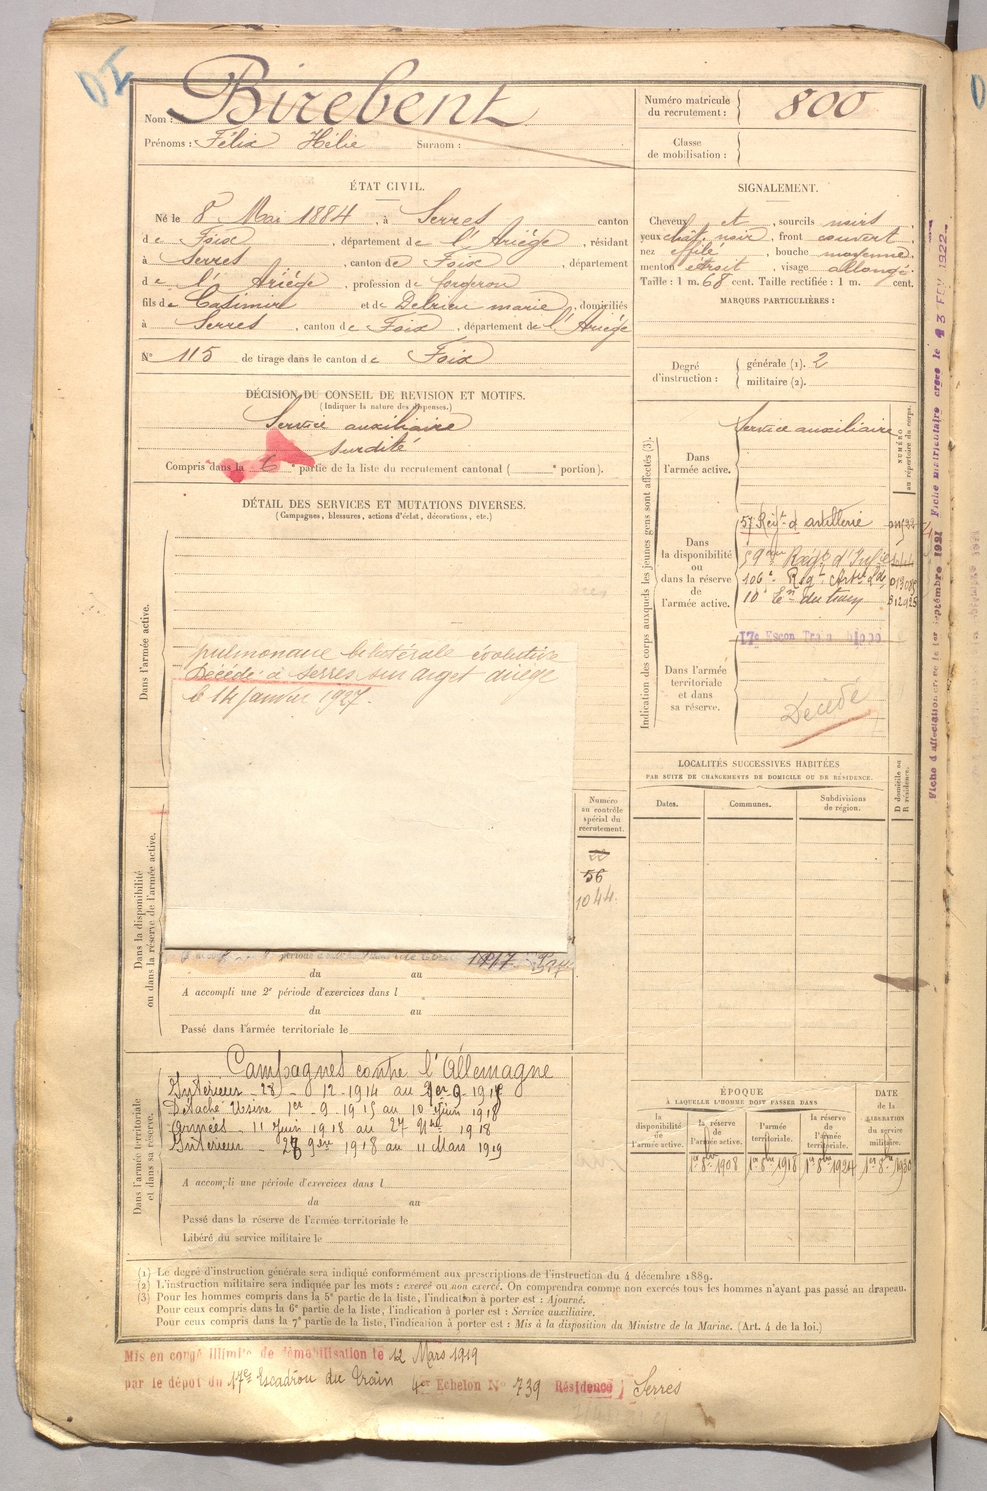 Nom : Birebent
Prénoms : Félix Hélie Surnom :
Numéro matricule du recrutement : 800
Classe de mobilisation :
ÉTAT CIVIL.
Né le 8 Mai 1884, à Serres canton
de Foix, département de l'Ariège, résidant
à Serres, canton de Foix, département
de l'Ariège, profession de forgeron
fils de Casimir et de Delrieu marie, domiciliés
à Serres, canton de Foix, département de l'Ariège
N° 115 de tirage dans le canton de Foix
SIGNALEMENT.
Cheveux et, sourcils noirs
yeux chât. noir, front couvert
nez effilé, bouche moyenne
menton étroit, visage allongé.
Taille : 1 m. 68 cent. Taille rectifiée : 1 m. cent.
MARQUES PARTICULIÈRES :
Degré d'instruction : générale (1). 2
militaire (2).
DÉCISION DU CONSEIL DE REVISION ET MOTIFS.
(Indiquer la nature des dispenses.)
Service auxiliaire
surdité
Compris dans la 6e partie de la liste du recrutement cantonal ( e portion).
DÉTAIL DES SERVICES ET MUTATIONS DIVERSES.
(Campagnes, blessures, actions d'éclat, décorations, etc.)
Dans l'armée active.
pulmonaire bilatérale évolutive
Décédé à Serres sur arget ariège
le 14 janvier 1927.
Dans la disponibilité
ou dans la réserve de l'armée active.
Numéro
au contrôle
spécial du
recrutement.
56
1044
période 1917
du au
A accompli une 2e période d'exercices dans l
du au
Passé dans l'armée territoriale le
Dans l'armée territoriale
et dans sa réserve.
Campagnes contre l'Allemagne
Intérieur 28 - 12 - 1914 au 1er 9 - 1915
Détaché Usine 1er - 9 - 1915 au 10 Juin 1918
Armées - 11 Juin 1918 au 27 1918
Intérieur - 28 9bre 1918 au 11 Mars 1919
A accompli une période d'exercices dans l
du au
Passé dans la réserve de l'armée territoriale le
Libéré du service militaire le
Indication des corps auxquels les jeunes gens sont affectés (3).
NUMÉRO
au répertoire du corps.
Dans
l'armée active.
Service auxiliaire
Dans
la disponibilité
ou
dans la réserve
de
l'armée active.
57 Régt d'artillerie
59eme Régt d'Infie
106e Régt Artie Lde
10e En du train
17e Escon Train
Dans l'armée
territoriale
et dans
sa réserve.
Décédé
LOCALITÉS SUCCESSIVES HABITÉES
PAR SUITE DE CHANGEMENTS DE DOMICILE OU DE RÉSIDENCE.
Dates.
Communes.
Subdivisions
de région.
D domicile ou
R résidence.
ÉPOQUE
À LAQUELLE L'HOMME DOIT PASSER DANS
DATE
de la
LIBÉRATION
du service
militaire.
la
disponibilité
de
l'armée active.
la réserve
de
l'armée active.
l'armée
territoriale.
la réserve
de
l'armée
territoriale.
1er 8bre 1908
1er 8bre 1918
1er 8bre 1924
1er 8bre 1930
(1) Le degré d'instruction générale sera indiqué conformément aux prescriptions de l'instruction du 4 décembre 1889.
(2) L'instruction militaire sera indiquée par les mots : exercé ou non exercé. On comprendra comme non exercés tous les hommes n'ayant pas passé au drapeau.
(3) Pour les hommes compris dans la 5e partie de la liste, l'indication à porter est : Ajourné.
Pour ceux compris dans la 6e partie de la liste, l'indication à porter est : Service auxiliaire.
Pour ceux compris dans la 7e partie de la liste, l'indication à porter est : Mis à la disposition du Ministre de la Marine. (Art. 4 de la loi.)
Mis en congé illimité de démobilisation le 12 Mars 1919
par le dépot du 17e Escadron du Train 4er Echelon N° 739 Résidence Serres
Fiche d'affectation créée le 1er septembre 1921 Fiche matriculaire créée le 3 FEV 1922